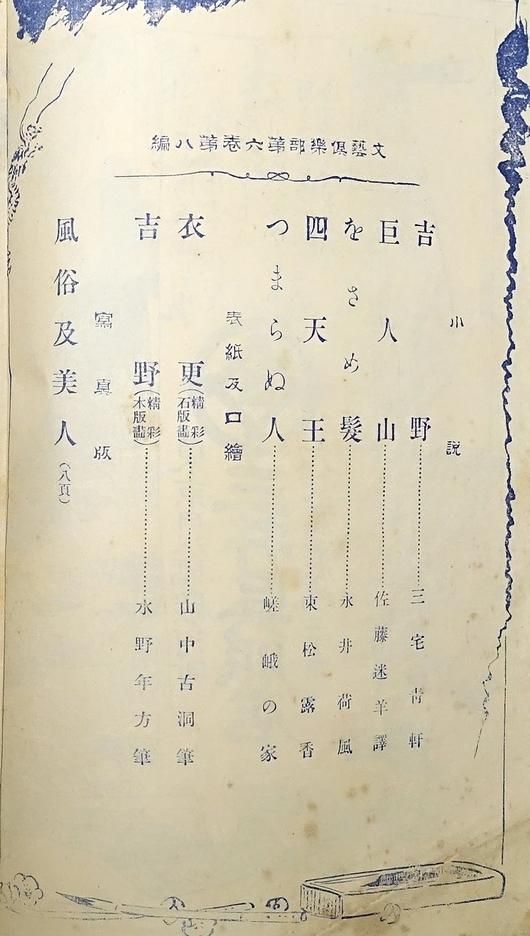 文藝倶樂部第六卷第八編
小説
吉野 三宅靑軒
巨人山 佐藤迷羊譯
をさめ髮 永井荷風
四天王 東松露香
つまらぬ人 嵯峨の家
表紙及口繪
衣更(精彩石版畫) 山中古洞筆
吉野(精彩木版畫) 水野年方筆
寫眞版
風俗及美人(八頁)